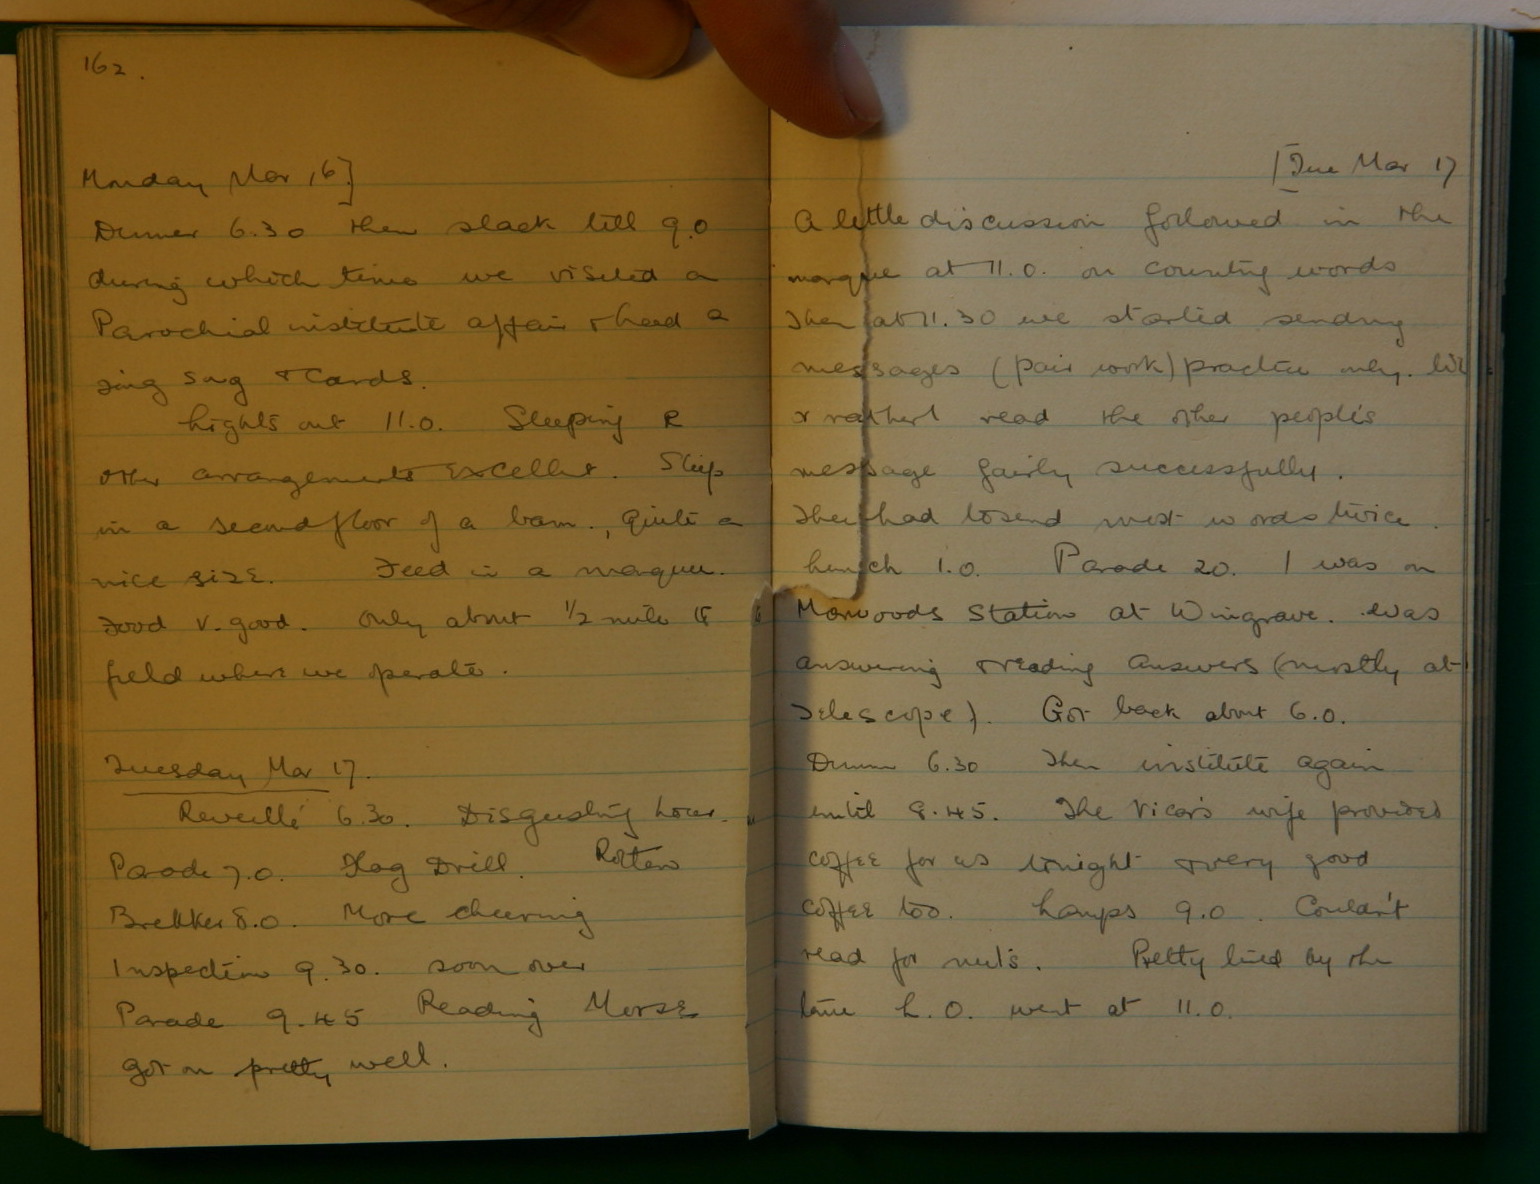 162.
Monday Mar 16]
Dinner 6.30 then slack till 9.0
during which time we visited a
Parochial institute affair & had a
sing song & Cards.
Lights out 11.0. Sleeping &
other arrangements excellent. Sleep
in a second floor of a barn, Quite a
nice size. Feed in a marquee.
Food v. good. Only about 1/2 mile
field where we operate.
Tuesday Mar 17.
Reveillé 6.30. Disgusting hour.
Parade 7.0. Flag Drill. Rotten
Brekker 8.0. More cheering
Inspection 9.30. soon over
Parade 9.45 Reading Morse
got on pretty well.
[Tue Mar 17
A little discussion followed in the
marque at 11.0. on counting words
Then at 11.30 we started sending
messages (pair work) practice only.
& rather I read the other people's
message fairly successfully.
They had to send most words twice.
Lunch 1.0. Parade 2.0. I was on
Station at Wingrave. Was
answering & reading answers (mostly at
Telescope). Got back about 6.0.
Dinner 6.30 Then institute again
until 8.45. The Vicar's wife provided
coffee for us tonight & very good
coffee too. Lamps 9.0. Couldn't
read for nuts. Pretty tired by the
time L.O. went at 11.0.